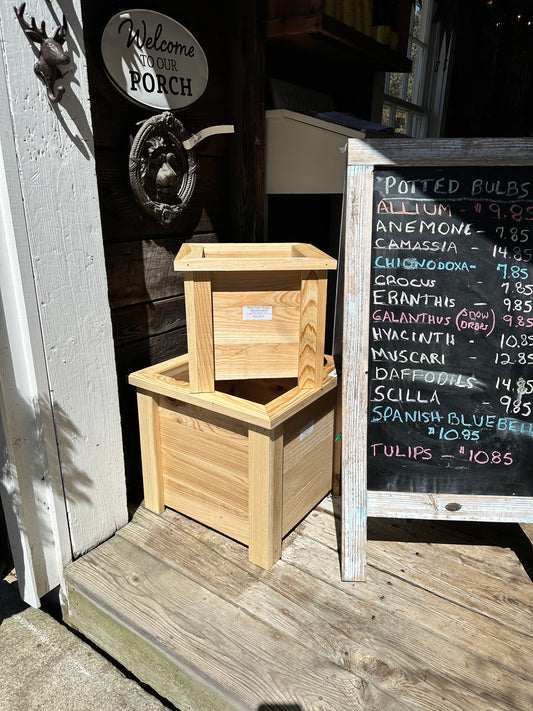 Welcome
TO OUR
PORCH
POTTED BULBS
ALLIUM - $9.85
ANEMONE - 7.85
CAMASSIA - 14.85
CHIONODOXA - 7.85
CROCUS - 7.85
ERANTHIS - 9.85
GALANTHUS (SNOW DROPS) 9.85
HYACINTH - 10.85
MUSCARI - 12.85
DAFFODILS - 14.85
SCILLA - 9.85
SPANISH BLUEBELL
$10.85
TULIPS - $10.85